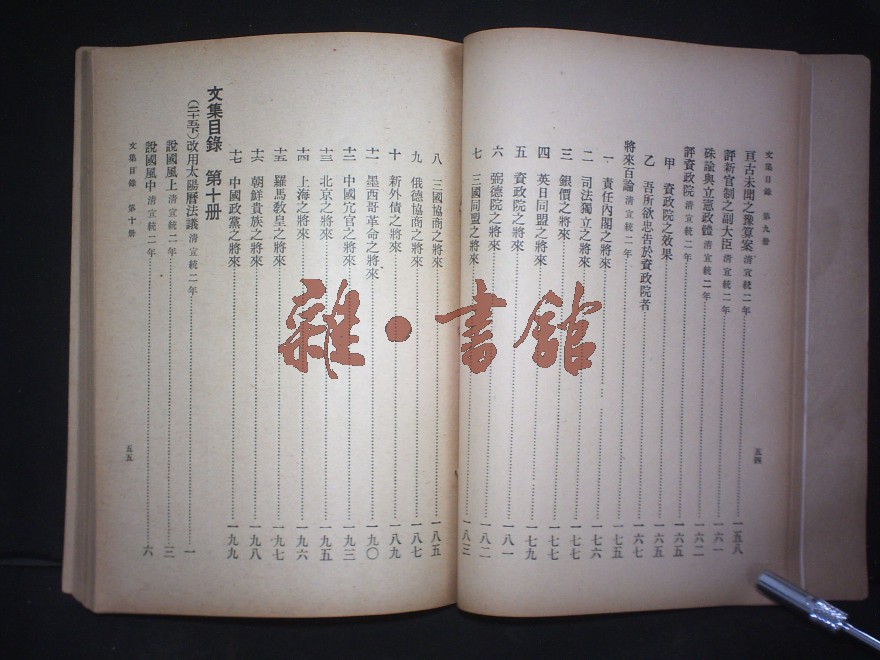 文集目錄　第九册
亘古未聞之豫算案 清宣統二年 一五八
評新官制之副大臣 清宣統二年 一六一
硃諭與立憲政體 清宣統二年 一六二
評資政院 清宣統二年 一六五
甲　資政院之效果 一六五
乙　吾所欲忠告於資政院者 一六七
將來百論 清宣統二年 一七五
一　責任內閣之將來 一七六
二　司法獨立之將來 一七七
三　銀價之將來 一七七
四　英日同盟之將來 一七七
五　資政院之將來 一七九
六　弼德院之將來 一八一
七　三國同盟之將來 一八二
五四
八　三國協商之將來 一八五
九　俄德協商之將來 一八七
十　新外債之將來 一八九
十一　墨西哥革命之將來 一九〇
十二　中國冗官之將來 一九三
十三　北京之將來 一九五
十四　上海之將來 一九六
十五　羅馬教皇之將來 一九七
十六　朝鮮貴族之將來 一九八
十七　中國政黨之將來 一九九
文集目錄　第十册
（二十五下）改用太陽曆法議 清宣統二年 一
說國風上 清宣統二年 三
說國風中 清宣統二年 六
文集目錄　第十册
五五
雜·書館